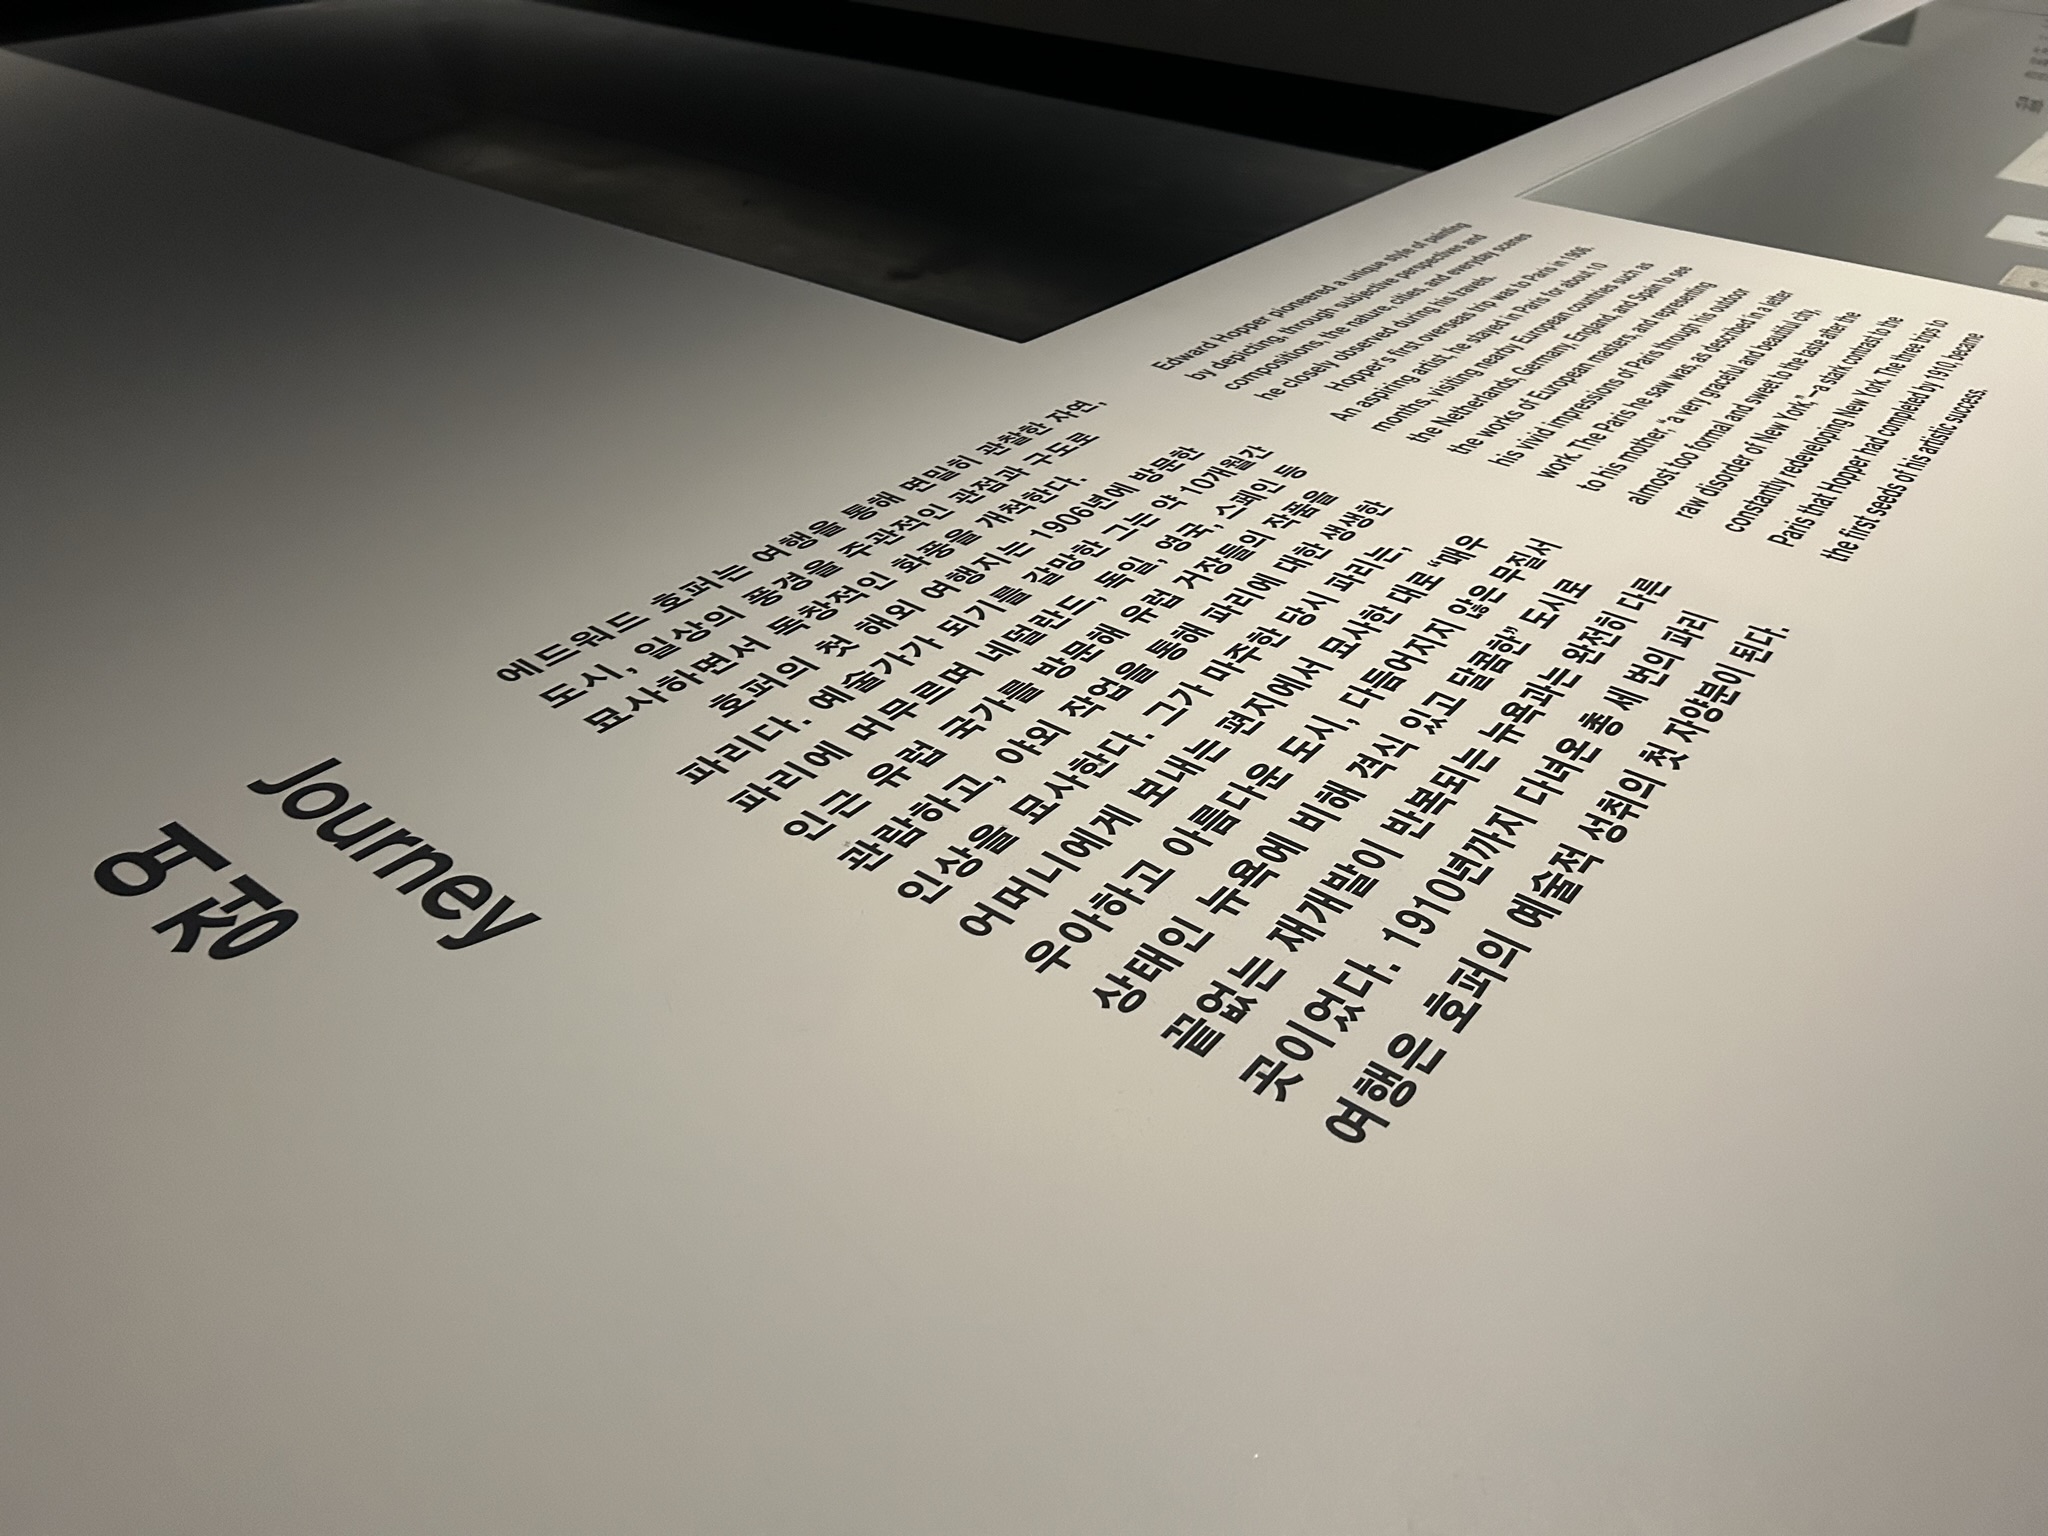 여정
Journey
에드워드 호퍼는 여행을 통해 면밀히 관찰한 자연,
도시, 일상의 풍경을 주관적인 관점과 구도로
묘사하면서 독창적인 화풍을 개척한다.
호퍼의 첫 해외 여행지는 1906년에 방문한
파리다. 예술가가 되기를 갈망한 그는 약 10개월간
파리에 머무르며 네덜란드, 독일, 영국, 스페인 등
인근 유럽 국가를 방문해 유럽 거장들의 작품을
관람하고, 야외 작업을 통해 파리에 대한 생생한
인상을 묘사한다. 그가 마주한 당시 파리는,
어머니에게 보내는 편지에서 묘사한 대로 “매우
우아하고 아름다운 도시, 다듬어지지 않은 무질서
상태인 뉴욕에 비해 격식 있고 달콤한” 도시로
끝없는 재개발이 반복되는 뉴욕과는 완전히 다른
곳이었다. 1910년까지 다녀온 총 세 번의 파리
여행은 호퍼의 예술적 성취의 첫 자양분이 된다.
Edward Hopper pioneered a unique style of painting
by depicting, through subjective perspectives and
compositions, the nature, cities, and everyday scenes
he closely observed during his travels.
Hopper's first overseas trip was to Paris in 1906.
An aspiring artist, he stayed in Paris for about 10
months, visiting nearby European countries such as
the Netherlands, Germany, England, and Spain to see
the works of European masters, and representing
his vivid impressions of Paris through his outdoor
work. The Paris he saw was, as described in a letter
to his mother, “a very graceful and beautiful city,
almost too formal and sweet to the taste after the
raw disorder of New York,”—a stark contrast to the
constantly redeveloping New York. The three trips to
Paris that Hopper had completed by 1910, became
the first seeds of his artistic success.